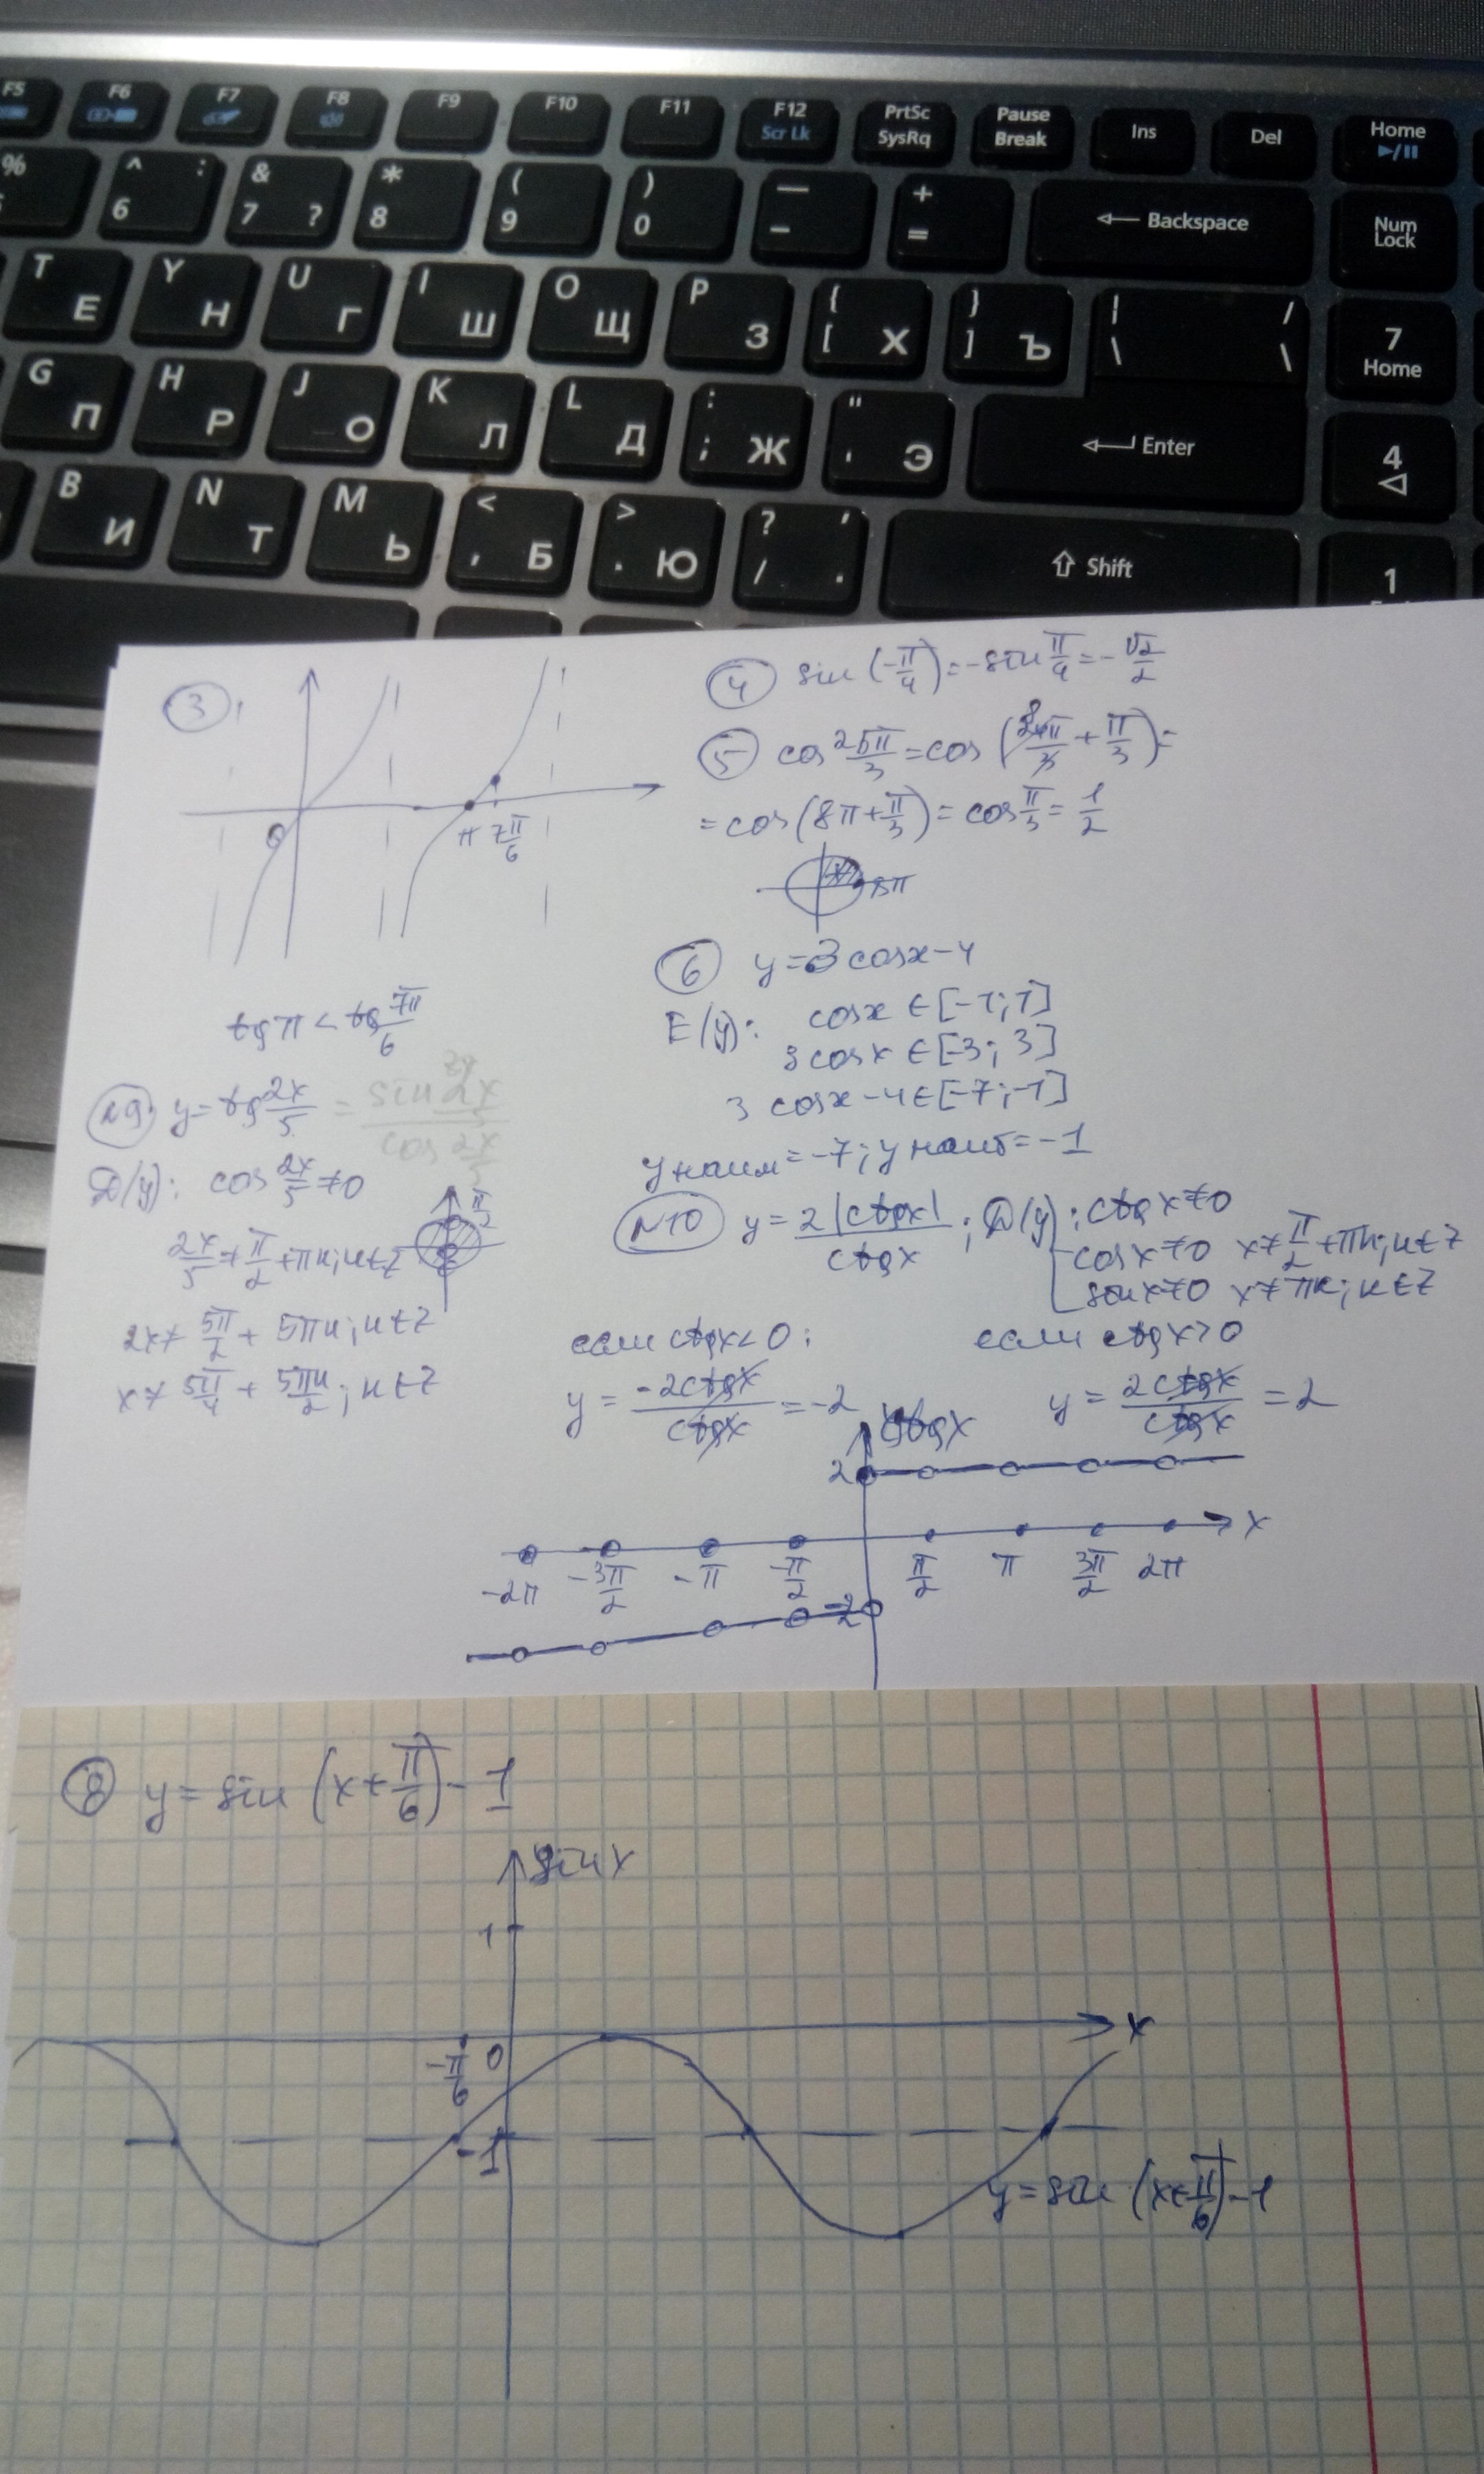 F5 F6 F7 F8 F9 F10 F11 F12 Scr Lk PrtSc SysRq Pause Break Ins Del Home
% ^ 6 : & 7 ? * 8 ( 9 ) 0 — - + = Backspace Num Lock
T Е Y Н U Г I Ш O Щ P З { [ Х } ] Ъ | \ / \ 7 Home
G П H Р J О K Л L Д : ; Ж " ' Э Enter 4
B И N Т M Ь < , Б > . Ю ? / , . Shift 1
3
0 π 7π/6
tg π < tg 7π/6
4 sin (-π/4) = -sin π/4 = -√2/2
5 cos 25π/3 = cos (24π/3 + π/3) =
= cos (8π + π/3) = cos π/3 = 1/2
8π
6 y = 3 cos x - 4
E(y): cos x ∈ [-1; 1]
3 cos x ∈ [-3; 3]
3 cos x - 4 ∈ [-7; -1]
y наим = -7; y наиб = -1
N9 y = tg 2x/5 = sin 2x/5 / cos 2x/5
D(y): cos 2x/5 ≠ 0
π/2
2x/5 ≠ π/2 + πn; n ∈ Z
2x ≠ 5π/2 + 5πn; n ∈ Z
x ≠ 5π/4 + 5πn/2; n ∈ Z
N10 y = 2|ctg x| / ctg x; D(y): ctg x ≠ 0
cos x ≠ 0 x ≠ π/2 + πn; n ∈ Z
sin x ≠ 0 x ≠ πn; n ∈ Z
если ctg x < 0: если ctg x > 0
y = -2ctg x / ctg x = -2 y = 2ctg x / ctg x = 2
2
-2π -3π/2 -π -π/2 π/2 π 3π/2 2π x
-2
8 y = sin (x + π/6) - 1
sin x
1
-π/6 0 x
-1
y = sin (x + π/6) - 1